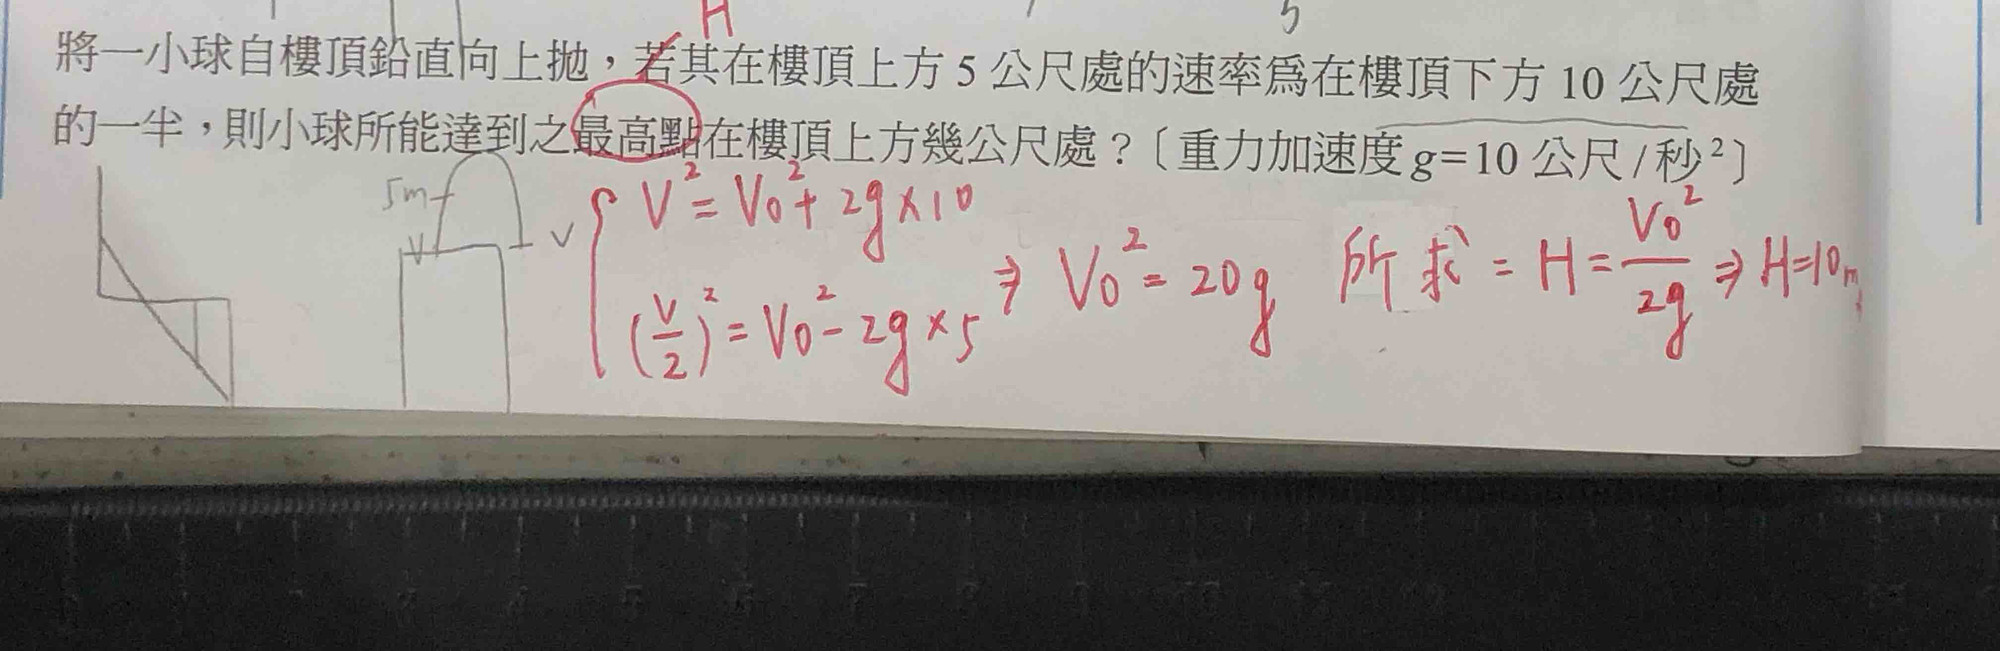 H
5
將一小球自樓頂鉛直向上拋，若其在樓頂上方 5 公尺處的速率為在樓頂下方 10 公尺處
的一半，則小球所能達到之最高點在樓頂上方幾公尺處？〔重力加速度 g=10 公尺/秒²〕
5m
V
V
V² = V0² + 2g×10
(V/2)² = V0² - 2g×5
⇒ V0² = 20g
所求 = H = V0²/2g ⇒ H=10m